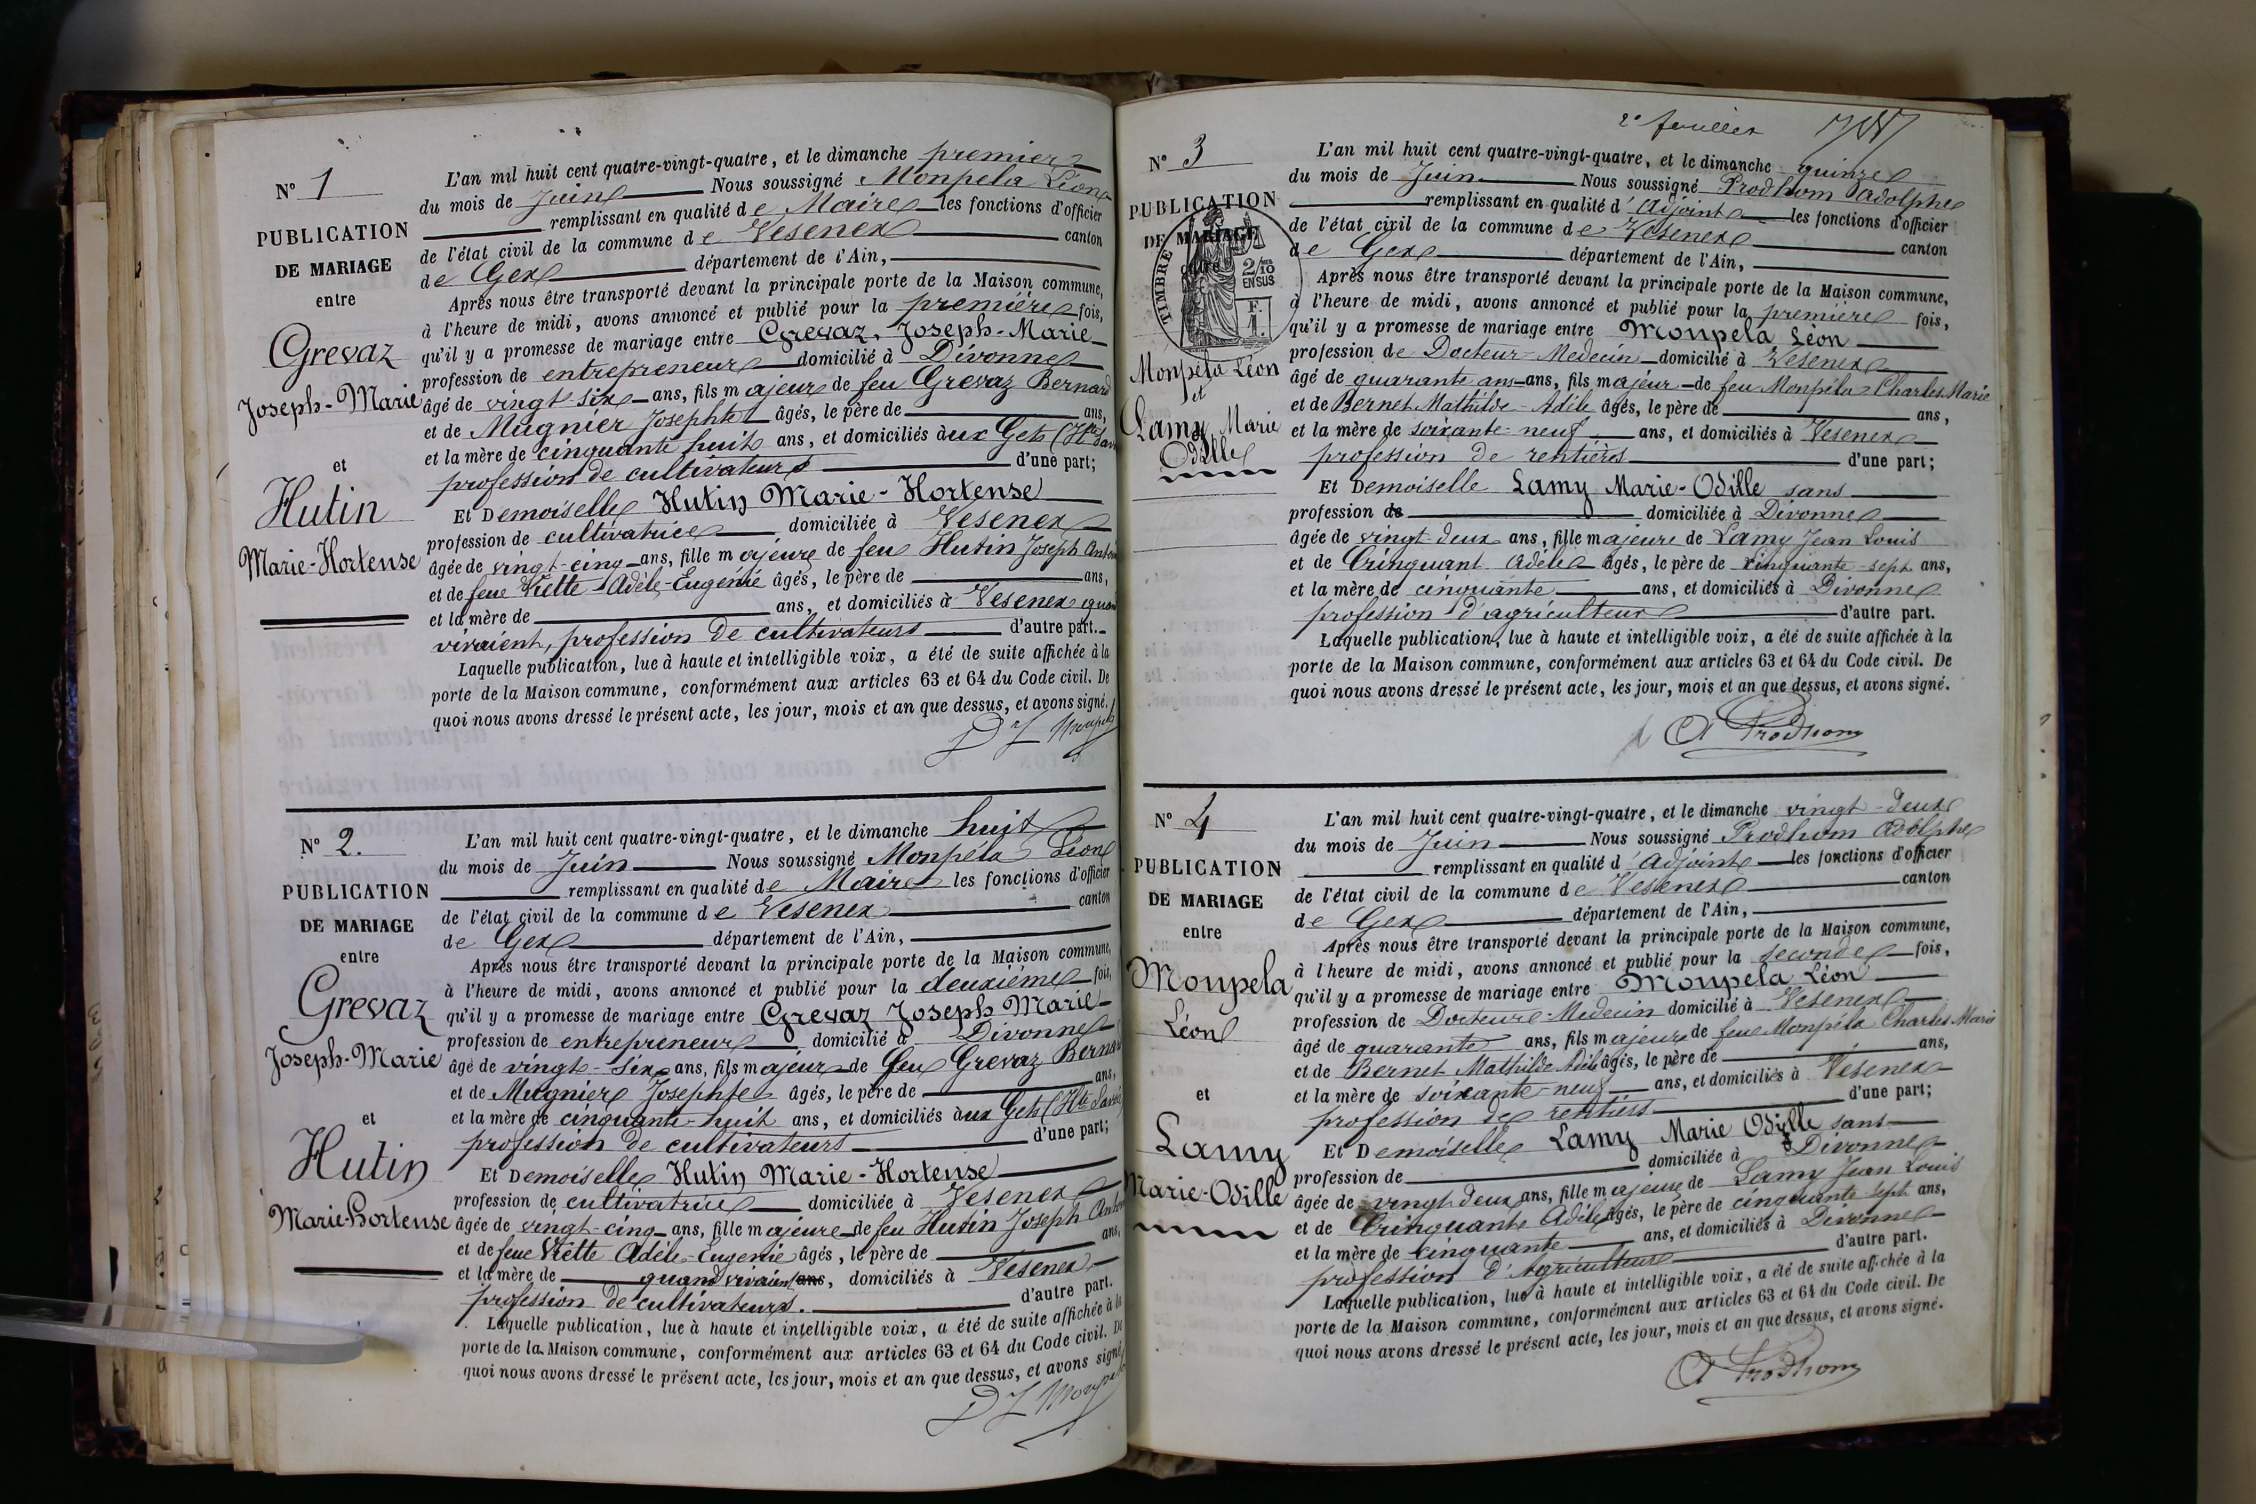 N° 1
PUBLICATION
DE MARIAGE
entre
Grevaz
Joseph-Marie
et
Hutin
Marie-Hortense
L'an mil huit cent quatre-vingt-quatre, et le dimanche premier
du mois de Juin Nous soussigné Monpela Léon
remplissant en qualité de Maire les fonctions d'officier
de l'état civil de la commune de Vesenex canton
de Gex département de l'Ain,
Après nous être transporté devant la principale porte de la Maison commune,
à l'heure de midi, avons annoncé et publié pour la première fois,
qu'il y a promesse de mariage entre Grevaz, Joseph-Marie
profession de entrepreneur domicilié à Divonne
âgé de vingt six ans, fils majeur de feu Grevaz Bernard
et de Mugnier Josephte âgés, le père de ans,
et la mère de cinquante huit ans, et domiciliés à aux Gets (Hte Sav
profession de cultivateurs d'une part;
Et Demoiselle Hutin Marie-Hortense
profession de cultivatrice domiciliée à Vesenex
âgée de vingt-cinq ans, fille majeure de feu Hutin Joseph Anto
et de feue Viette Adèle-Eugénie âgés, le père de ans,
et la mère de ans, et domiciliés à Vesenex quand
vivaient, profession de cultivateurs d'autre part.
Laquelle publication, lue à haute et intelligible voix, a été de suite affichée à la
porte de la Maison commune, conformément aux articles 63 et 64 du Code civil. De
quoi nous avons dressé le présent acte, les jour, mois et an que dessus, et avons signé.
D L Monpela
N° 2.
PUBLICATION
DE MARIAGE
entre
Grevaz
Joseph-Marie
et
Hutin
Marie-Hortense
L'an mil huit cent quatre-vingt-quatre, et le dimanche huit
du mois de Juin Nous soussigné Monpéla Léon
remplissant en qualité de Maire les fonctions d'officier
de l'état civil de la commune de Vesenex canton
de Gex département de l'Ain,
Après nous être transporté devant la principale porte de la Maison commune,
à l'heure de midi, avons annoncé et publié pour la deuxième fois,
qu'il y a promesse de mariage entre Grevaz Joseph Marie
profession de entrepreneur domicilié à Divonne
âgé de vingt-six ans, fils majeur de feu Grevaz Bernard
et de Mugnier Josephte âgés, le père de ans,
et la mère de cinquante-huit ans, et domiciliés à aux Gets (Hte Savoie
profession de cultivateurs d'une part;
Et Demoiselle Hutin Marie-Hortense
profession de cultivatrice domiciliée à Vesenex
âgée de vingt-cinq ans, fille majeure de feu Hutin Joseph Anto
et de feue Viette Adèle-Eugénie âgés, le père de ans,
et la mère de quand vivaient ans, domiciliés à Vésenex
profession de cultivateurs. d'autre part.
Laquelle publication, lue à haute et intelligible voix, a été de suite affichée à la
porte de la Maison commune, conformément aux articles 63 et 64 du Code civil. De
quoi nous avons dressé le présent acte, les jour, mois et an que dessus, et avons signé
D L Monpela
2e feuillet
N° 3
PUBLICATION
DE MARIAGE
entre
TIMBRE
2/10
EN SUS
F.
1.
Monpéla Léon
et
Lamy Marie
Odille
L'an mil huit cent quatre-vingt-quatre, et le dimanche quinze
du mois de Juin Nous soussigné Prodhom Adolphe
remplissant en qualité d'adjoint les fonctions d'officier
de l'état civil de la commune de Vesenex canton
de Gex département de l'Ain,
Après nous être transporté devant la principale porte de la Maison commune,
à l'heure de midi, avons annoncé et publié pour la première fois,
qu'il y a promesse de mariage entre Monpela Léon
profession de Docteur-Medecin domicilié à Vésenex
âgé de quarante ans ans, fils majeur de feu Monpéla Charles Marie
et de Bernet Mathilde-Adèle âgés, le père de ans,
et la mère de soixante-neuf ans, et domiciliés à Vesenex
profession de rentières d'une part;
Et Demoiselle Lamy Marie-Odille sans
profession de domiciliée à Divonne
âgée de vingt-deux ans, fille majeure de Lamy Jean Louis
et de Cringuant Adèle âgés, le père de cinquante-sept ans,
et la mère de cinquante ans, et domiciliés à Divonne
profession d'agriculteur d'autre part.
Laquelle publication, lue à haute et intelligible voix, a été de suite affichée à la
porte de la Maison commune, conformément aux articles 63 et 64 du Code civil. De
quoi nous avons dressé le présent acte, les jour, mois et an que dessus, et avons signé.
A Prodhom
N° 4
PUBLICATION
DE MARIAGE
entre
Monpela
Léon
et
Lamy
Marie-Odille
L'an mil huit cent quatre-vingt-quatre, et le dimanche vingt-deux
du mois de Juin Nous soussigné Prodhom Adolphe
remplissant en qualité d'adjoint les fonctions d'officier
de l'état civil de la commune de Vesenex canton
de Gex département de l'Ain,
Après nous être transporté devant la principale porte de la Maison commune,
à l'heure de midi, avons annoncé et publié pour la seconde fois,
qu'il y a promesse de mariage entre Monpela Léon
profession de Docteur-Medecin domicilié à Vesenex
âgé de quarante ans, fils majeur de feu Monpéla Charles Marie
et de Bernet Mathilde Adèle âgés, le père de ans,
et la mère de soixante-neuf ans, et domiciliés à Vésenex
profession de rentiers d'une part;
Et Demoiselle Lamy Marie Odille sans
profession de domiciliée à Divonne
âgée de vingt-deux ans, fille majeure de Lamy Jean Louis
et de Cringuante Adèle âgés, le père de cinquante sept ans,
et la mère de cinquante ans, et domiciliés à Divonne
profession d'Agriculteur d'autre part.
Laquelle publication, lue à haute et intelligible voix, a été de suite affichée à la
porte de la Maison commune, conformément aux articles 63 et 64 du Code civil. De
quoi nous avons dressé le présent acte, les jour, mois et an que dessus, et avons signé.
A Prodhom